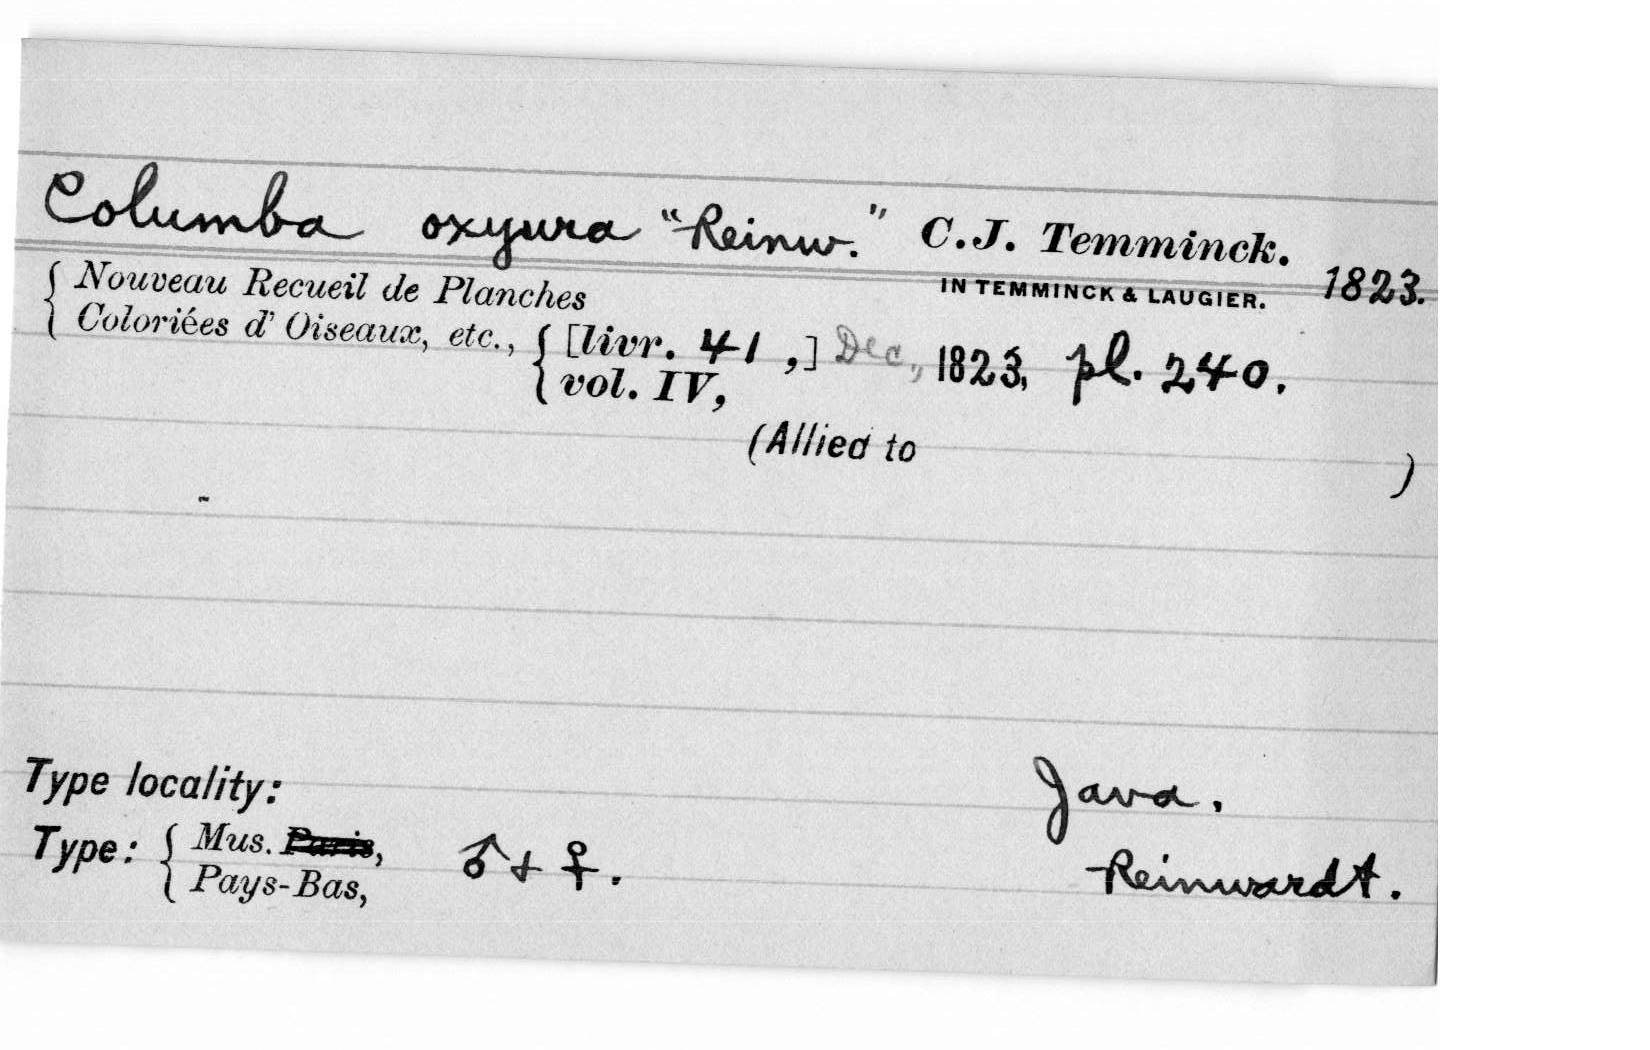 Columba oxyura "Reinw." C.J. Temminck.
IN TEMMINCK & LAUGIER. 1823.
{ Nouveau Recueil de Planches
Coloriées d' Oiseaux, etc., { [livr. 41 ,] Dec., 1823, pl. 240.
vol. IV,
(Allied to )
Type locality: Java.
Type: { Mus. Paris, ♂ + ♀. Reinwardt.
Pays-Bas,